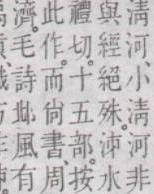 清河、小清河非
與經絕殊。泲水
禮切。十五部。按
此作。而尙書、周
濟。毛詩邶風有